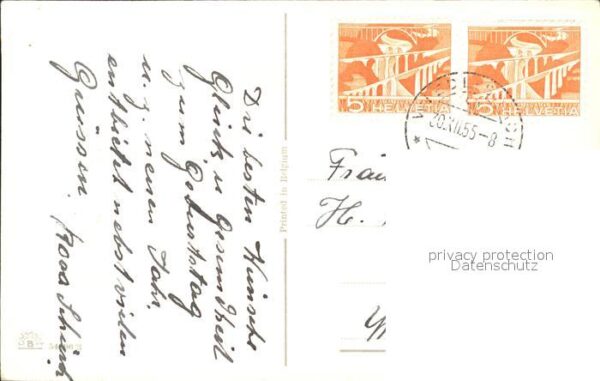 Die besten Wünsche
Glück, u. Gesundheit
zum Geburtstag
u. z. neuen Jahr,
entbietet nebst vielen
Grüssen.
Rosa
Printed in Belgium
5 HELVETIA
5 HELVETIA
30.XII.55-8
H.
privacy protection
Datenschutz